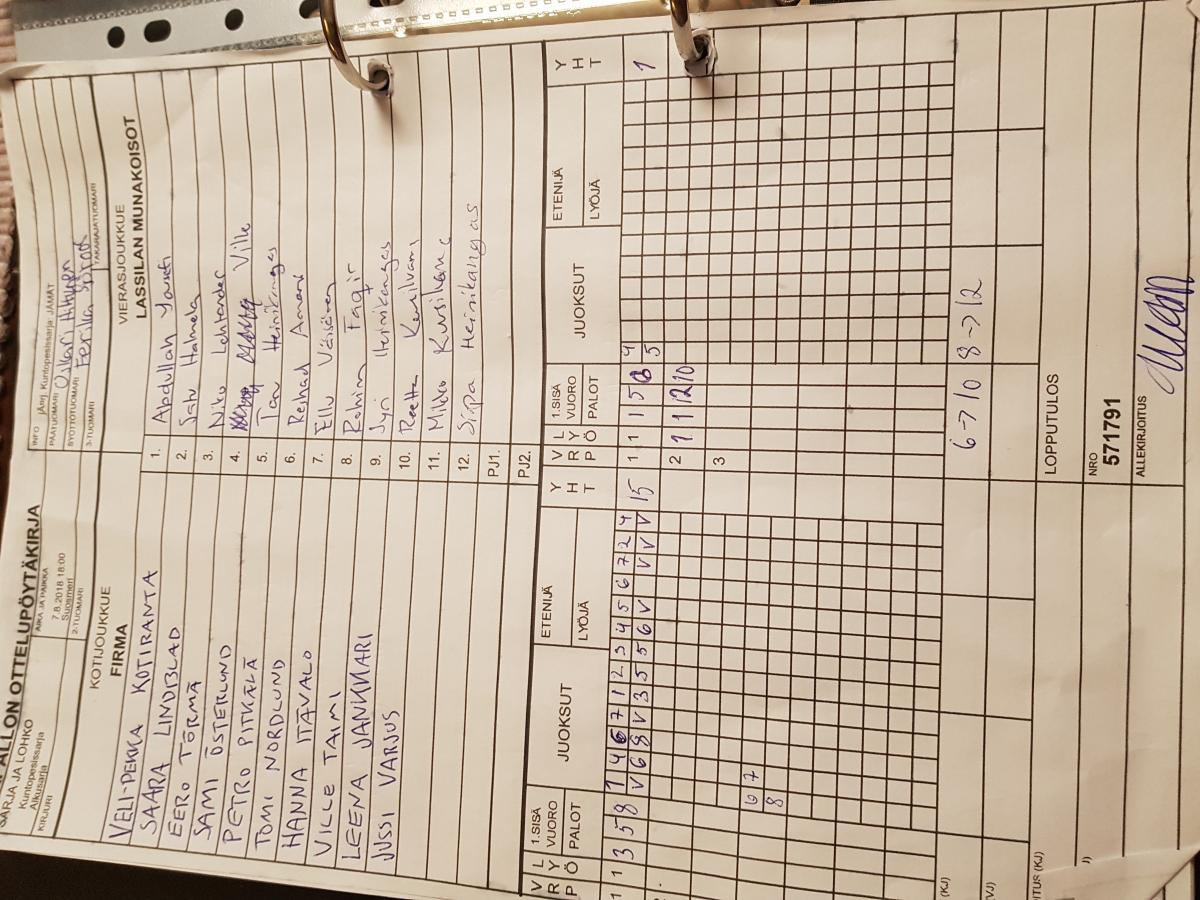 ALLON OTTELUPÖYTÄKIRJA
SARJA JA LOHKO
Kuntopesissarja
Alkusarja
AIKA JA PAIKKA
7.8.2018 18:00
Suosmeri
INFO jÄmj, Kuntopesissarja JÄMÄT
PÄÄTUOMARI Oskari
SYÖTTÖTUOMARI Eerika
KIRJURI
2-TUOMARI
3-TUOMARI
TAKARAJATUOMARI
KOTIJOUKKUE
FIRMA
VIERASJOUKKUE
LASSILAN MUNAKOISOT
VELI-PEKKA KOTIRANTA
1. Abdullah Yousefi
SAARA LINDBLAD
2. Satu Halmela
EERO TÖRMÄ
3. Niko Lehtander
SAMI ÖSTERLUND
4. Ville
PETRO PITKÄLÄ
5. Heinikangas
TOMI NORDLUND
6. Reshad Amani
HANNA ITÄVALO
7. Ellu Väisänen
VILLE TAIMI
8. Rahim Faqir
LEENA JANKKARI
9. Jyri Heinikangas
JUSSI VARJUS
10. Reetta
11. Mikko
12. Sirpa Heinikangas
PJ1.
PJ2.
VRP
LYÖ
1.SISÄ
VUORO
PALOT
JUOKSUT
ETENIJÄ
LYÖJÄ
YHT
VRP
LYÖ
1.SISÄ
VUORO
PALOT
JUOKSUT
ETENIJÄ
LYÖJÄ
YHT
1 1 3 5 8 1 4 6 7 1 2 3 4 5 6 7 2 4
V 6 8 V 3 5 5 6 V V V V 15
1 1 1 5 4
5 1
2 1 1 2 10
3
6 7
8
(KJ)
6 → 10 8 → 12
(VJ)
LOPPUTULOS
(KJ)
NRO
571791
ALLEKIRJOITUS